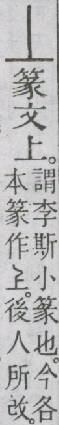 丄
篆文上。
謂李斯小篆也。今各
本篆作後人所改。